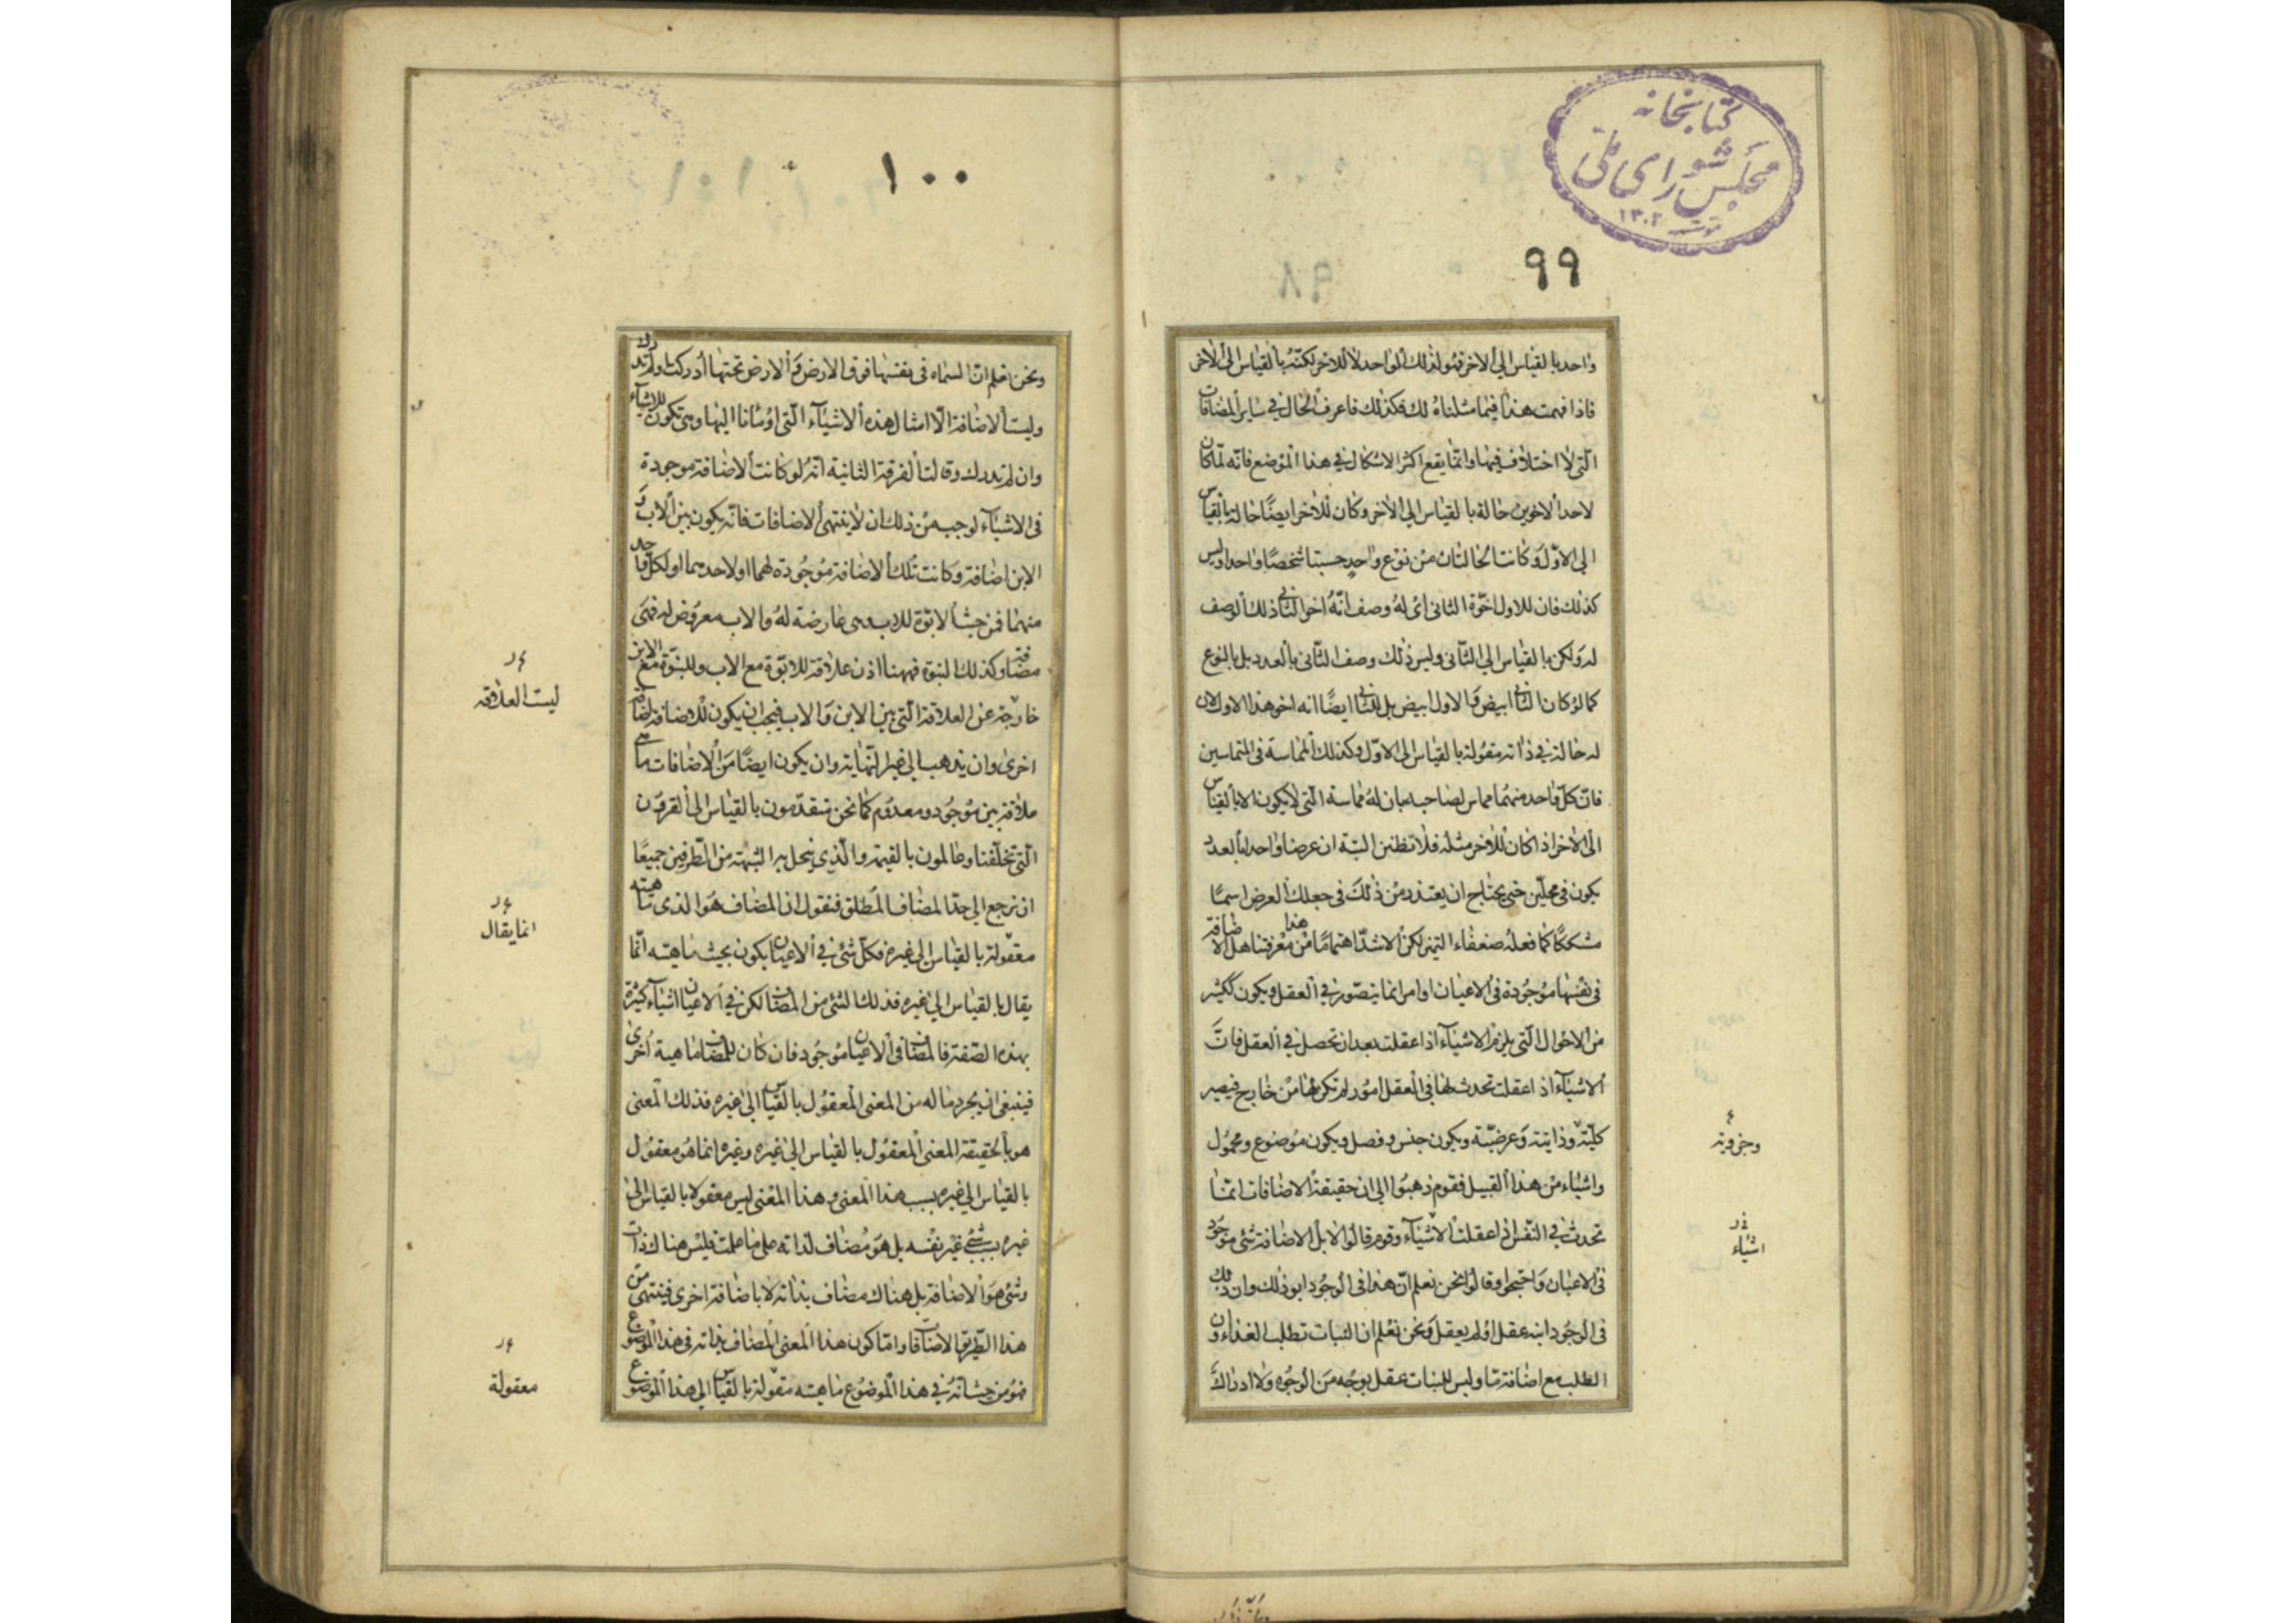 كتابخانه
مجلس شورای ملی
۱۳۰۲
۹۹
واحد بالقياس الى الاخر فهو لذلك الواحد لا للاخر لكنه بالقياس الى الاخر
فاذا فهمت هذا فيما مثلناه لك فكذلك فاعرف الحال في ساير المضافات
التى لا اختلاف فيها وانما يقع اكثر الاشكال في هذا الموضع فانه لما كان
لاحد الاخوين حالة بالقياس الى الاخر وكان للاخر ايضًا حالة بالقياس
الى الاول وكانت الحالتان من نوع واحد حسبتا شخصًا واحدا وليس
كذلك فان للاول اخوة الثانى اى له وصف انه اخو الثانى ذلك الوصف
له ولكن بالقياس الى الثانى وليس ذلك وصف الثانى بالعدد بل بالنوع
كما لو كان الثانى ابيض والاول ابيض بل الثانى ايضًا انه اخو هذا الاول لان
له حالة في ذاته مقولة بالقياس الى الاول وكذلك المماسة فى المتماسين
فان كل واحد منهما مماس لصاحبه بان له مماسة التى لا يكون الا بالقياس
الى الاخر اذا كان للاخر مثله فلا تظنن البتة ان عرضا واحدا بالعدد
يكون فى محلين حتى يحتاج ان يعتذر من ذلك فى جعلك العرض اسمًا
مشككًا كما فعله ضعفاء التميز لكن الاشد اهتمامًا من هذا معرفتنا هل الاضافة
فى نفسها موجودة فى الاعيان او امر انما يتصور في العقل ويكون ككثير
من الاحوال التى يلزم الاشيآء اذا عقلت بعد ان تحصل في العقل فانَّ
الاشيآء اذا عقلت تحدث لها فى العقل امور لم تكن لها من خارج فيصير
كلية وذاتية وعرضيّة ويكون جنس وفصل ويكون موضوع ومحمول
واشياء من هذا القبيل فقوم ذهبوا الى ان حقيقة الاضافات انما
تحدث في النفس اذا عقلت الاشيآء وقوم قالوا لا بل الاضافة شئ موجود
فى الاعيان واحتجوا وقالوا نحن نعلم انّ هذا فى الوجود ابو ذلك وان ذلك
فى الوجود ابنه عقل او لم يعقل ونحن نعلم ان النبات تطلب الغذاء وان
الطلب مع اضافة ما وليس للنبات عقل بوجه من الوجوه ولا ادراك
وجزوية
اشياء
۱۰۰
ونحن نعلم ان السماء فى نفسها فوق الارض والارض تحتها ادركت او لم تدرك
وليست الاضافة الّا امثال هذه الاشيآء الّتى اومانا اليها وهى تكون للاشيآء
وان لم تدرك وقالت الفرقة الثانية انه لو كانت الاضافة موجودة
فى الاشيآء لوجب من ذلك ان لا ينتهى الاضافات فانه يكون بين الاب و
الابن اضافة وكانت تلك الاضافة موجودة لهما او لاحدهما او لكل واحد
منهما فمن حيث الابوة للاب وهى عارضة له والاب معروض له فهى
مضافة وكذلك البنوة فههنا اذن علاقة للابوة مع الاب وللبنوة مع الابن
خارجة عن العلاقة التى بين الابن والاب فيجب ان يكون للاضافة اضافة
اخرى وان يذهب الى غير النهاية وان يكون ايضًا من الاضافات ما هى
علاقة بين موجود ومعدوم كما نحن متقدمون بالقياس الى القرون
الّتى تخلفنا وعالمون بالقيمة والّذى ينحل به الشبهة من الطرفين جميعًا
ان نرجع الى حد المضاف المطلق فنقول ان المضاف هو الذى ماهيته
معقولة بالقياس الى غيره فكل شئ في الاعيان يكون بحيث ماهيته انما
يقال بالقياس الى غيره فذلك الشئ من المضاف لكن في الاعيان اشيآء كثيرة
بهذه الصفة فالمضاف فى الاعيان موجود فان كان للمضاف ماهية اخرى
فينبغى ان يجرد ماله من المعنى المعقول بالقياس الى غيره فذلك المعنى
هو بالحقيقة المعنى المعقول بالقياس الى غيره وغيره انما هو معقول
بالقياس الى غيره بسبب هذا المعنى وهذا المعنى ليس معقولا بالقياس الى
غيره بسبب شئ غير نفسه بل هو مضاف لذاته على ما علمت فليس هناك ذات
وشئ هو الاضافة بل هناك مضاف بذاته لا باضافة اخرى فينتهى من
هذا الطريق الاضافات واما كون هذا المعنى المضاف بذاته فى هذا الموضوع
فهو من حيث انه في هذا الموضوع ماهيته مقولة بالقياس الى هذا الموضوع
ليست العلاقة
انما يقال
معقولة